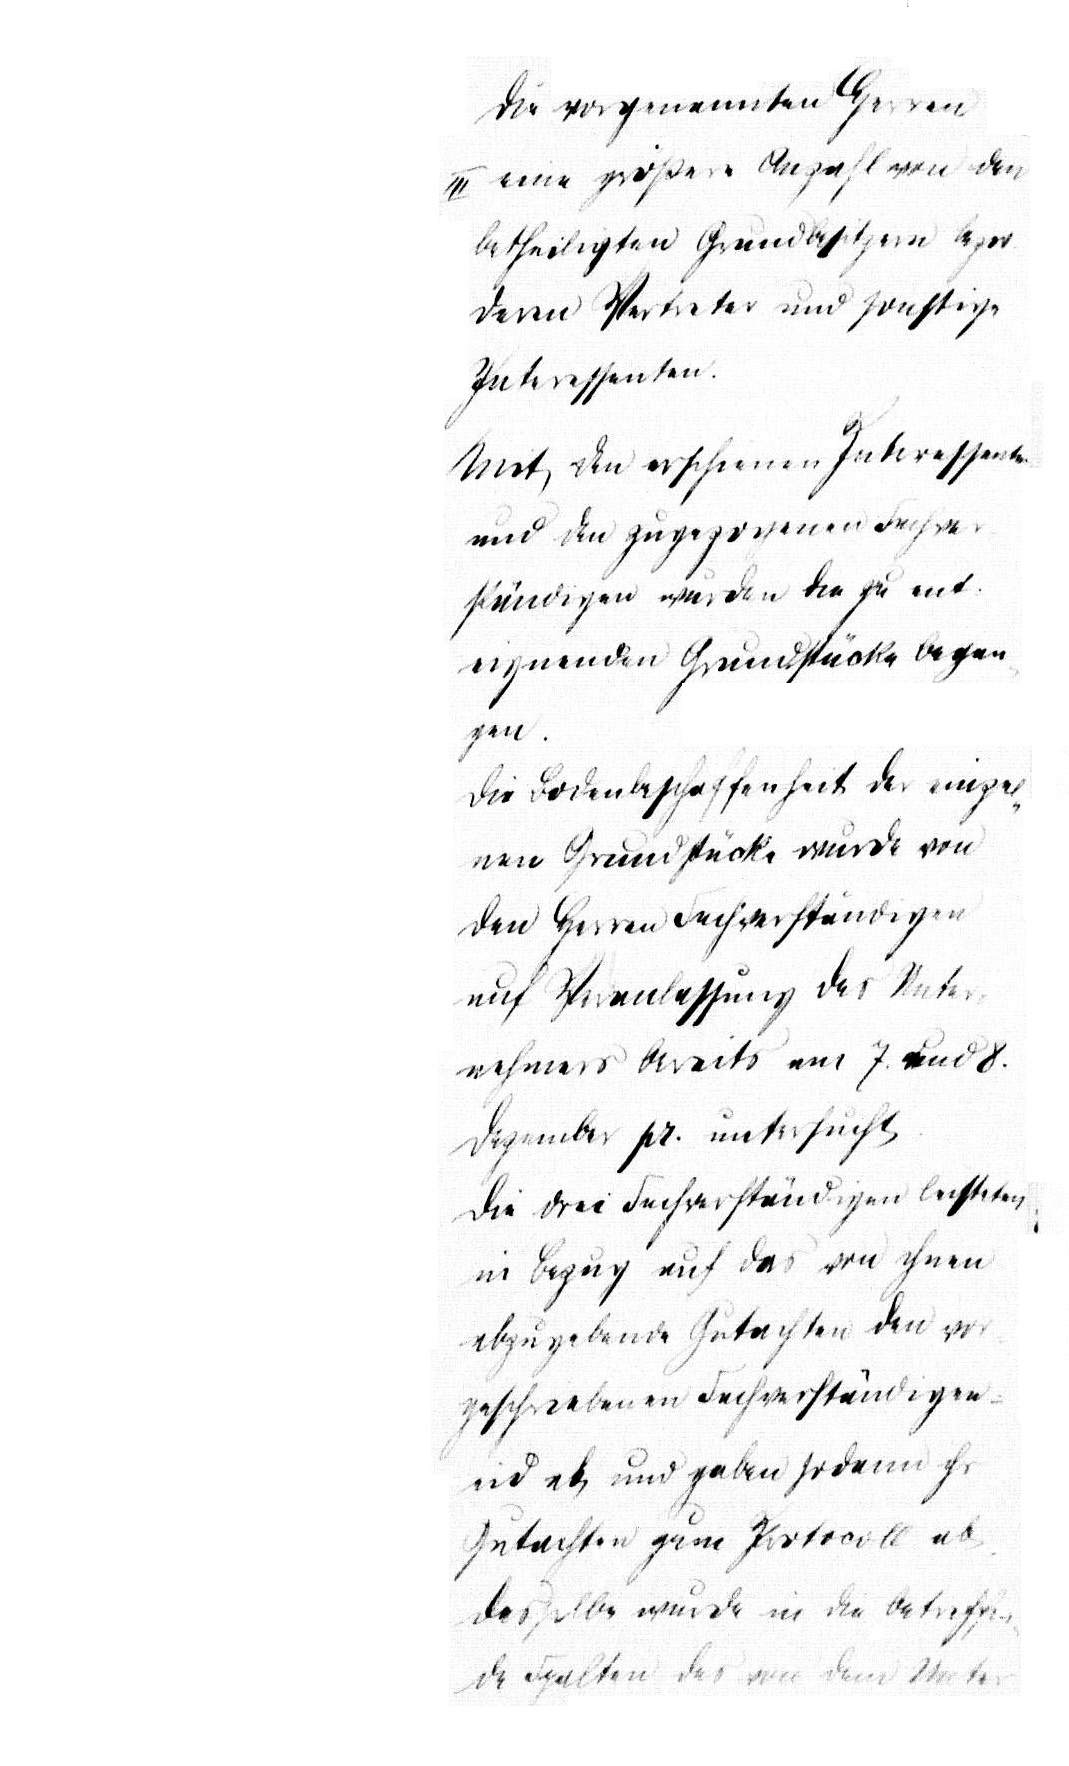 die vorgenannten Herren
III eine größere Anzahl von den
betheiligten Grundbesitzern bezw.
deren Vertreter und sonstige
Interessenten.
Mit den erschienen Interessenten
und den zugezogenen Sachver-
ständigen wurden die zu ent-
eignenden Grundstücke began-
gen.
Die Bodenbeschaffenheit der einzel-
nen Grundstücke wurde von
den Herren Sachverständigen
auf Veranlassung des Unter-
nehmers bereits am 7. und 8.
Dezember pr. untersucht
Die drei Sachverständigen leisteten
in Bezug auf das von ihnen
abzugebende Gutachten den vor-
geschriebenen Sachverständigen-
eid ab und gaben sodann ihr
Gutachten zum Protocoll ab
dasselbe wurde in die betreffen-
de Spalten des von dem Unter